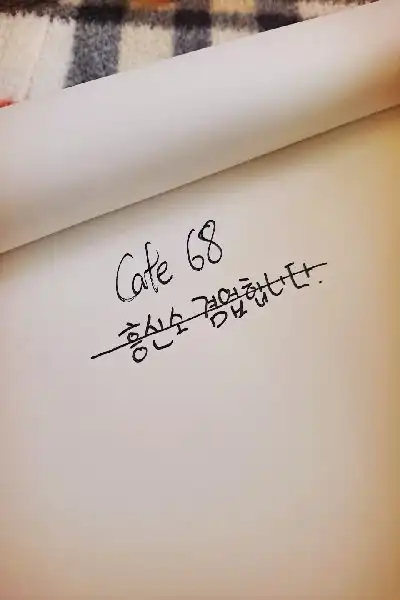 Cafe 68
흥신소 겸업합니다.